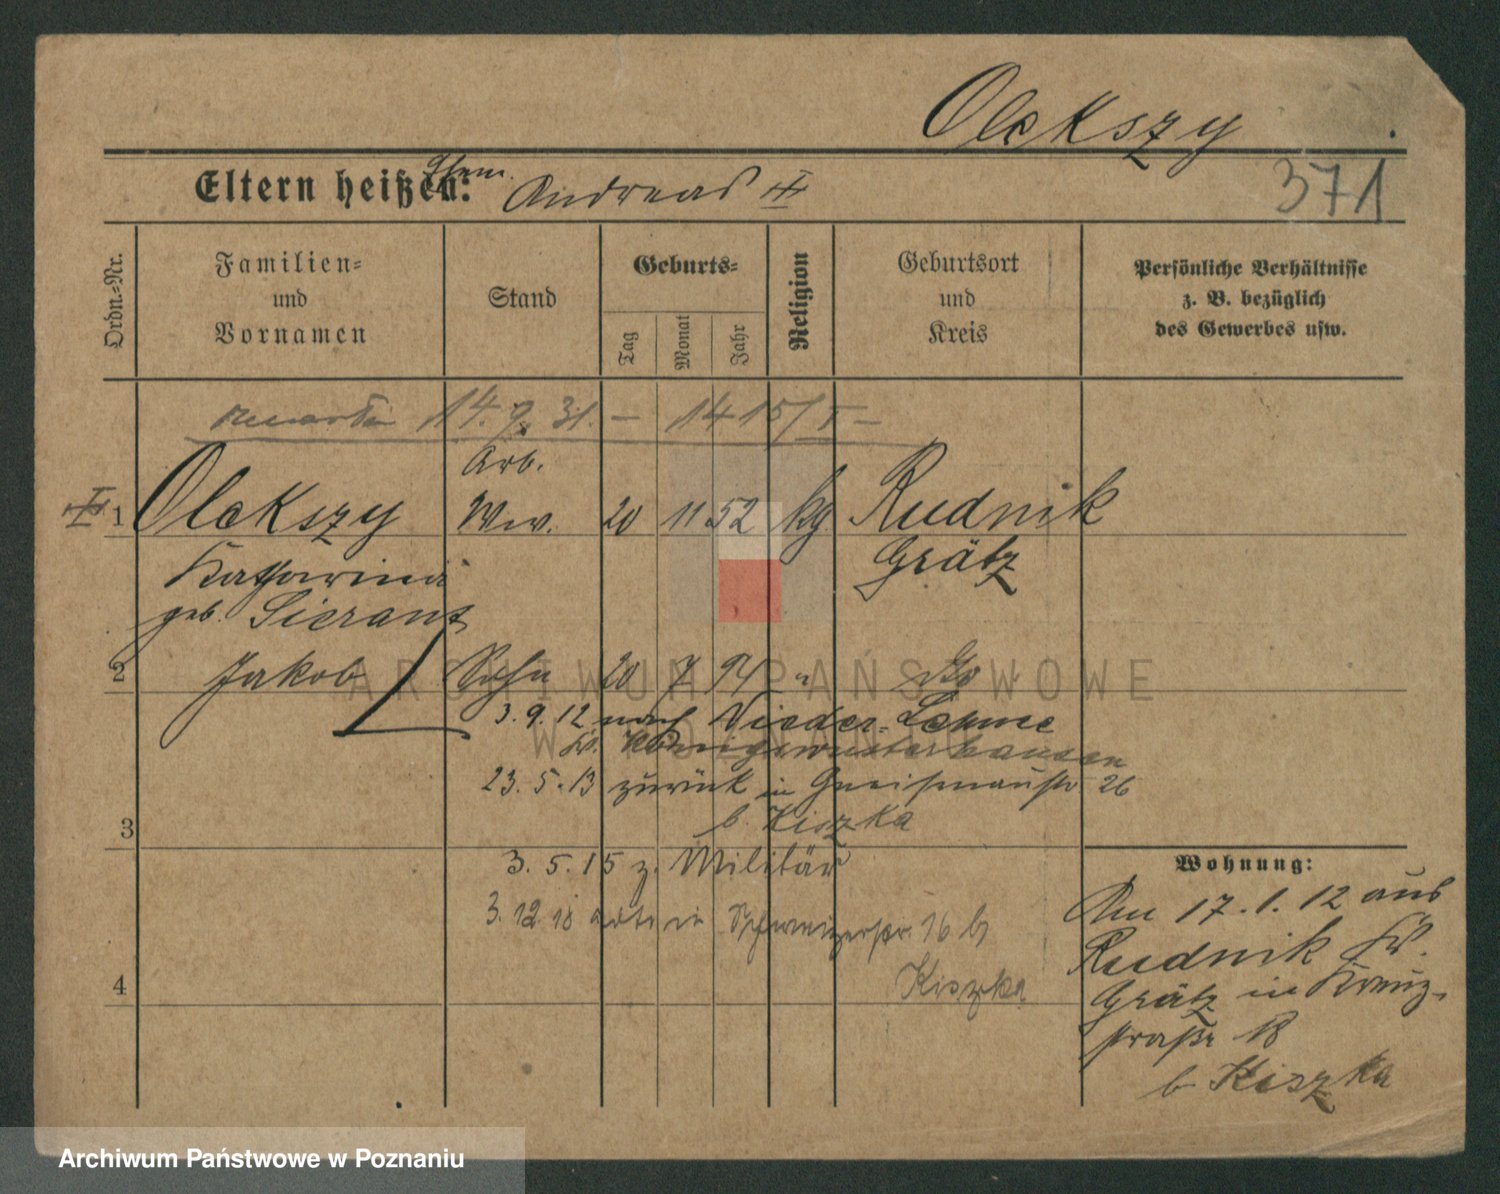 Olekszy
371
Eltern heißen: Ehem. Andreas
Ordn.-Nr.
Familien-
und
Vornamen
Stand
Geburts-
Tag
Monat
Jahr
Religion
Geburtsort
und
Kreis
Persönliche Verhältnisse
z. B. bezüglich
des Gewerbes usw.
14. 9. 31. – 1415/I –
Arb.
1 Olekszy Ww. 20 11 52 kg Rudnik
Katharina Grätz
geb. Sierant
2 Jakob Sohn 20 7 94 " do
3. 9. 12 nach Nieder-Lehme
Kr. Königswusterhausen
23. 5. 13 zurück in Gneisenaustr 26
b. Kiszka
3
3. 5. 15 z. Militär
3. 12 18 in 16 b
Kiszka
4
Wohnung:
Am 17. 1. 12 aus
Rudnik Kr.
Grätz in Kreuz-
straße 18
b Kiszka
ARCHIWUM PAŃSTWOWE
W POZNANIU
Archiwum Państwowe w Poznaniu